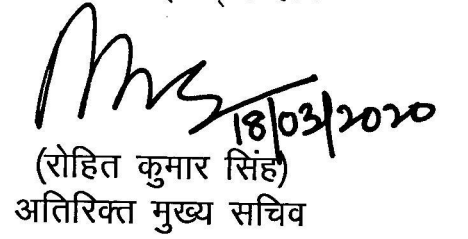 18/03/2020
(रोहित कुमार सिंह)
अतिरिक्त मुख्य सचिव